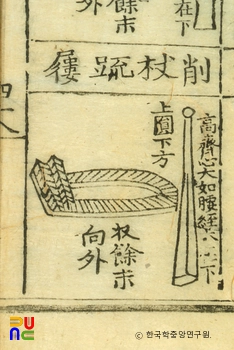 在下
餘末
向外
削杖疏屨
高齊心大如腰絰
下
上圓下方
收餘末
向外
© 한국학중앙연구원.